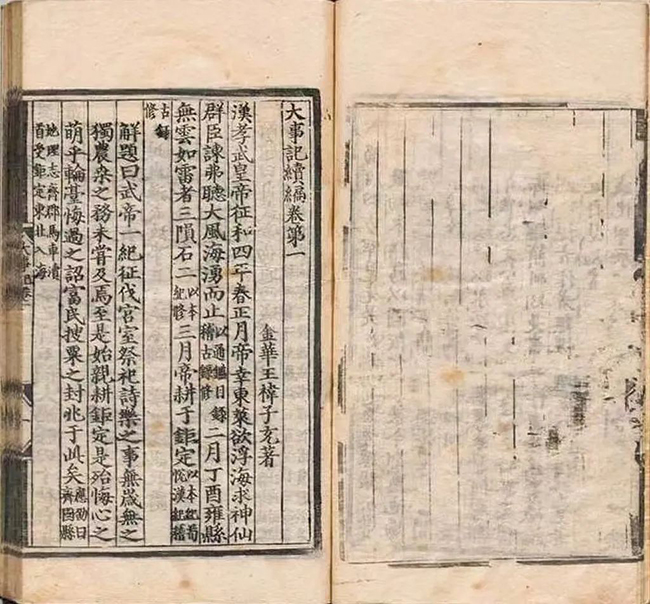 大事記續編卷第一
金華王禕子充著
漢孝武皇帝征和四年春正月帝幸東萊欲浮海求神仙
群臣諫弗聽大風海湧而止以通鑑目錄稽古錄修二月丁酉雍縣
無雲如雷者三隕石二以本紀修三月帝耕于鉅定以本紀荀悅漢紀稽
古錄修
解題曰武帝一紀征伐宮室祭祀詩樂之事無歲無之
獨農桒之務未嘗及焉至是始親耕鉅定是殆悔心之
萌乎輪臺悔過之詔富民搜粟之封兆于此矣應劭曰齊國縣
地理志齊郡馬車瀆首受鉅定東北入海